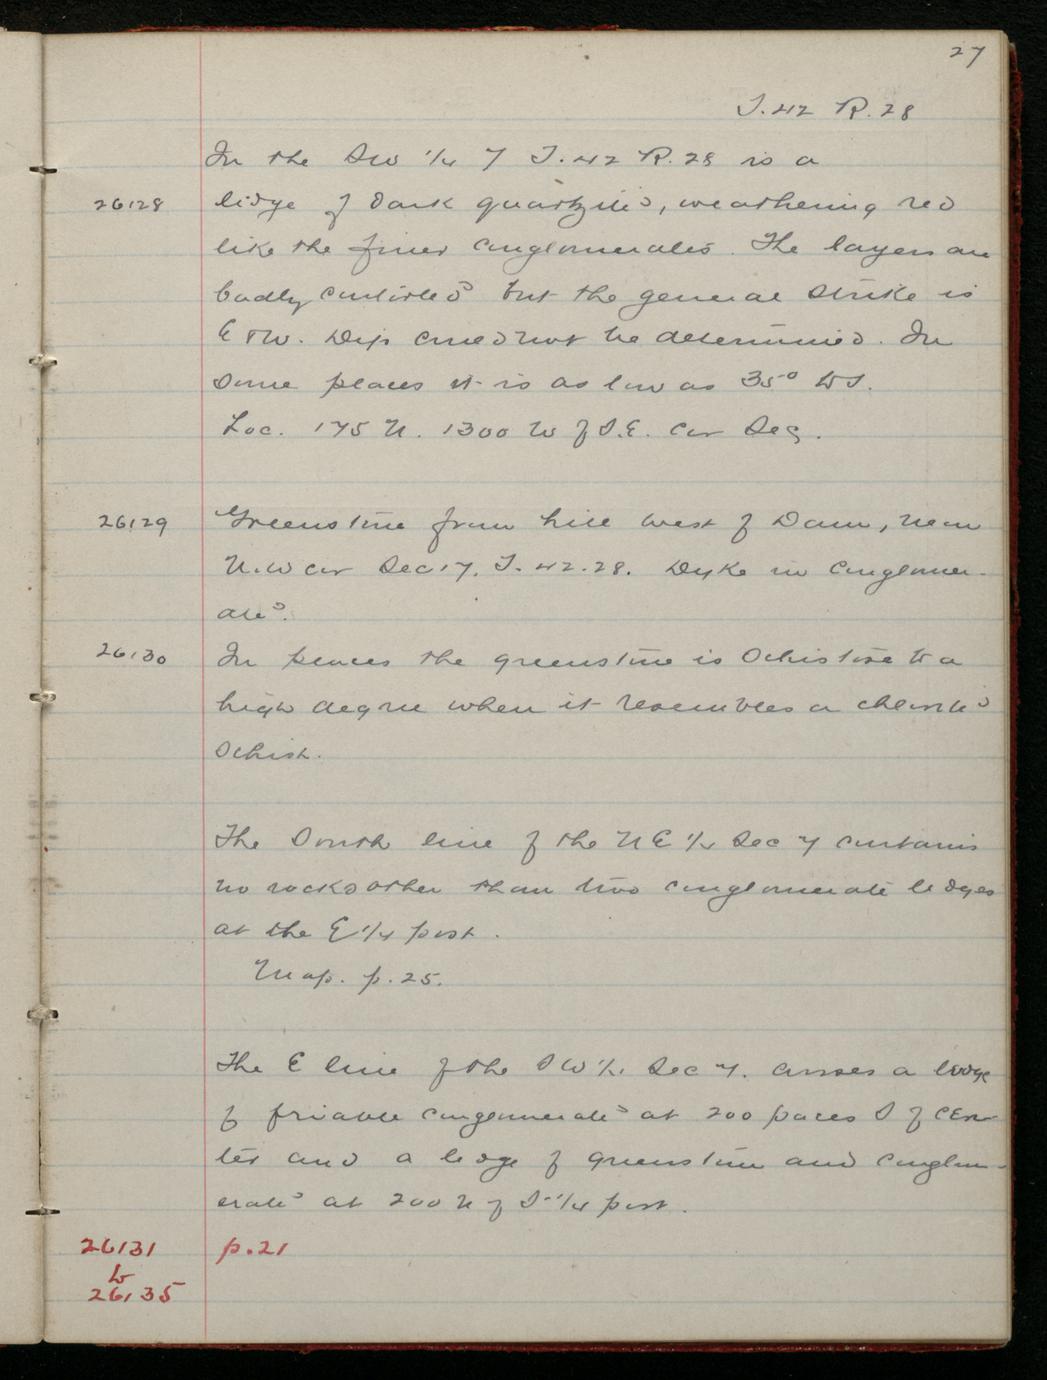 27
T.42 R.28
In the SW 1/4 7 T.42 R.28 is a
26128 ledge of dark quartzite, weathering red
like the finer conglomerates. The layers are
badly contorted but the general strike is
E & W. Dip could not be determined. In
some places it is as low as 35° to S.
Loc. 175 N. 1300 W of S.E. cor Sec.
26129 Greenstone from hill west of Dam, near
N.W cor Sec 17, T.42.28. Dyke in conglomer-
ate.
26130 In places the greenstone is schistose to a
high degree when it resembles a chlorite
schist.
The South line of the NE 1/4 Sec 7 contains
no rocks other than two conglomerate ledges
at the E 1/4 post.
Map. p.25.
The E line of the SW 1/4 Sec 7. crosses a ledge
of friable conglomerate at 200 paces S of cen-
ter and a ledge of greenstone and conglom-
erate at 200 N of S 1/4 post.
26131 p.21
to
26135